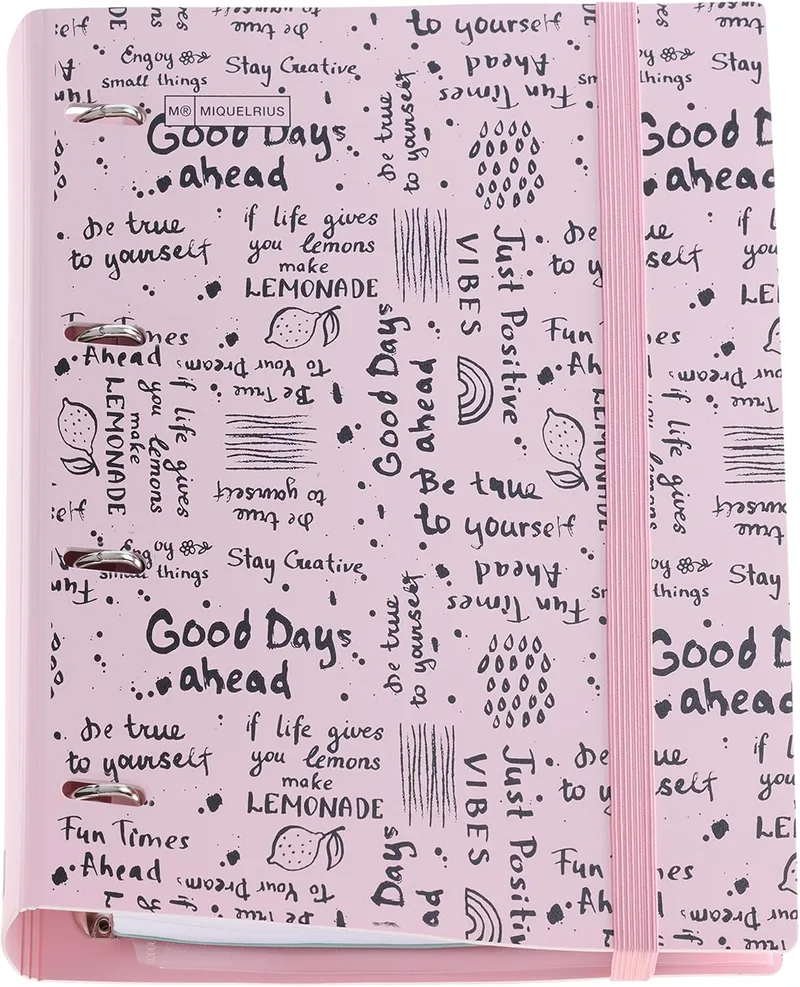 to yourself
be true
Enjoy
small things
Stay Creative
Ahead
Fun Times
true
Stay
M® MIQUELRIUS
Good Days
ahead
be true
to yourself
Good D
ahead
be true
to yourself
if life gives
you lemons
make
LEMONADE
Just Positive
VIBES
Fun Times
Ahead
To Your Dreams
Be True
if life gives
you lemons
make
LEMONADE
Good Days
ahead
be true
to yourself
Be true
to yourself
LEMONADE
if life gives
you lemons
Enjoy
small things
Stay Creative
Ahead
Fun Times
things
Stay
Good Days
ahead
be true
to yourself
Good D
ahead
be true
to yourself
if life gives
you lemons
make
LEMONADE
Just Positiv
VIBES
Fun Times
Ahead
To Your Dreams
Be True
Days
Fun